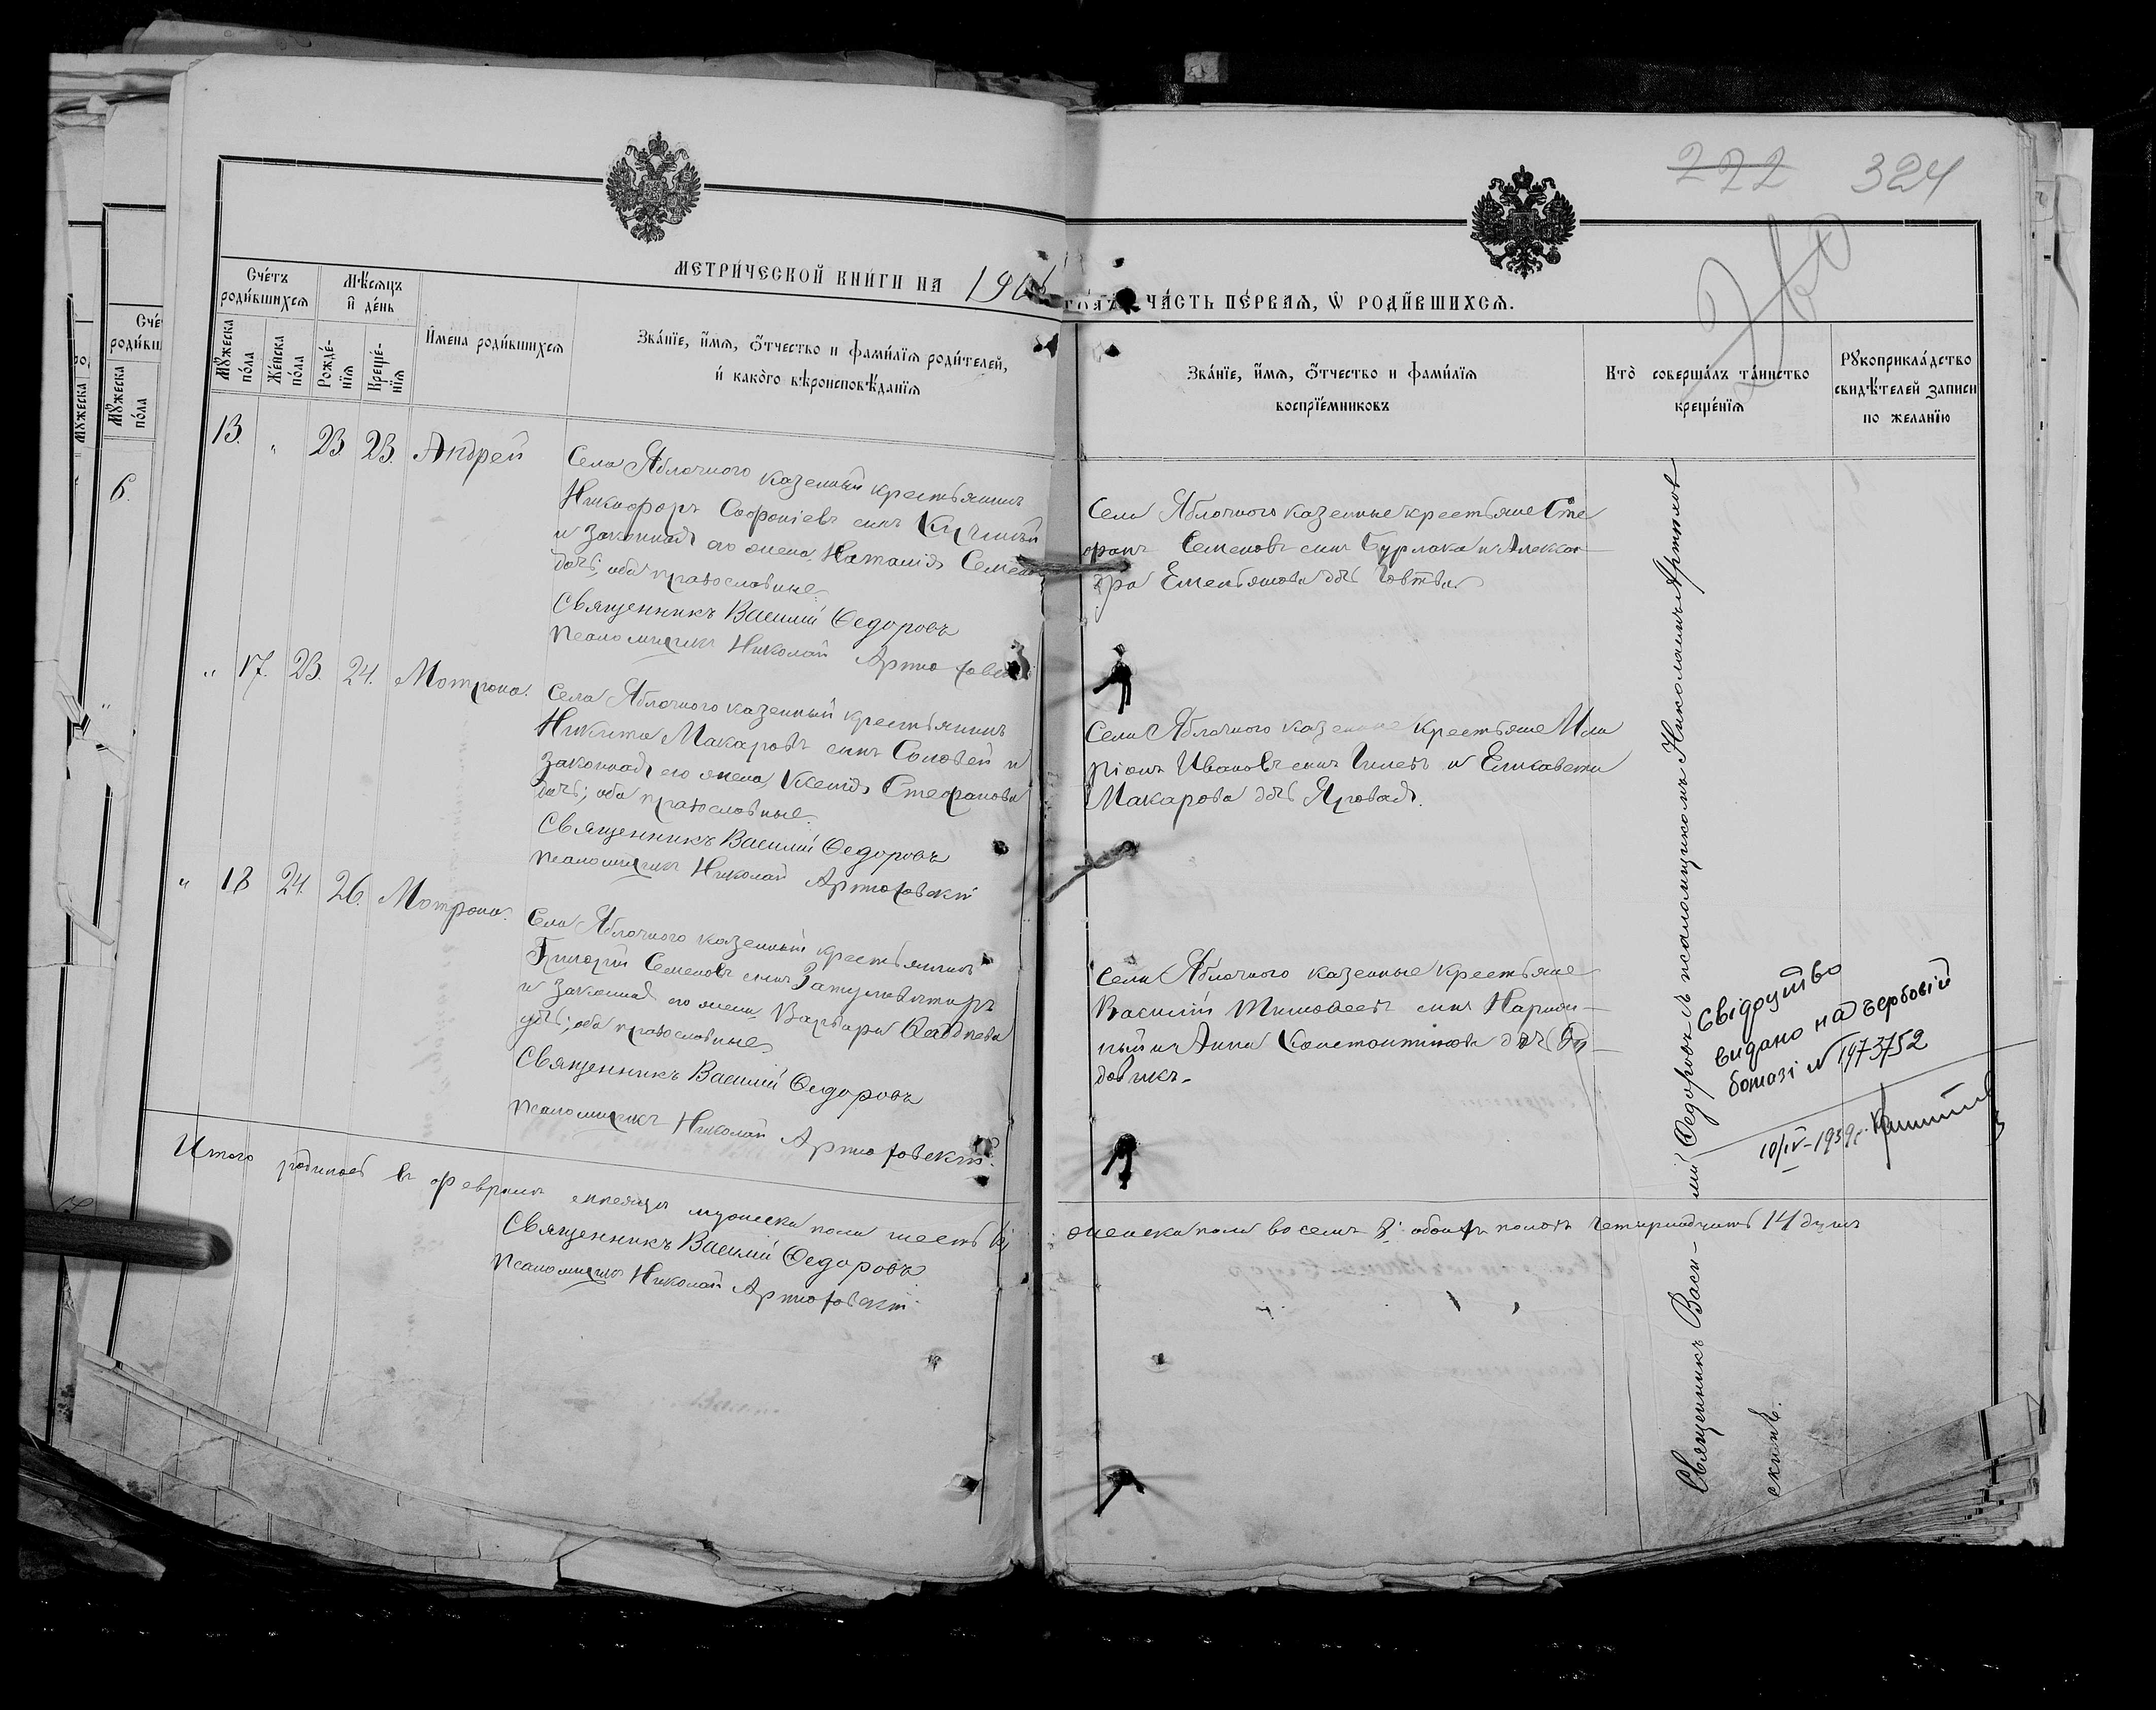 222 324
МЕТРИЧЕСКОЙ КНИГИ НА 190
ЧАСТЬ ПЕРВАЯ, Ѡ РОДИВШИХСЯ.
Счетъ родившихся
Мужеска пола
Женска пола
Мѣсяцъ и день
Рожденія
Крещенія
Имена родившихся
Званіе, имя, отчество и фамилія родителей,
и какого вѣроисповѣданія
Званіе, имя, отчество и фамилія
воспріемниковъ
Кто совершалъ таинство
крещенія
Рукоприкладство
свидѣтелей записи
по желанію
13. " 23 23. Андрей
Села Яблочного казенный крестьянинъ
Никифоръ Софроніевъ сынъ
и законная его жена Наталія
дочь; оба православные.
Священникъ Василій Ѳедоровъ
псаломщикъ Николай
Села Яблочного казенные крестьяне Сте
фанъ Семеновъ сынъ Бурлака и Алексан-
дра Емельянова дочь
" 17. 23. 24. Мотрона.
Села Яблочного казенный крестьянинъ
Никита Макаровъ сынъ Соловей и
законная его жена Ксенія Стефанова
дочь; оба православные.
Священникъ Василій Ѳедоровъ
псаломщикъ Николай Артюховскій
Села Яблочного казенные крестьяне Ила
ріонъ Ивановъ сынъ и Елисавета
Макарова дочь Яровая.
" 18 24. 26. Мотрона.
Села Яблочного казенный крестьянинъ
Григорій Семеновъ сынъ
и законная его жена Варвара
дочь; оба православные
Священникъ Василій Ѳедоровъ
псаломщикъ Николай Артюховскій.
Села Яблочного казенные крестьяне
Василій Тимоѳеевъ сынъ
и Анна Константинова дочь
Священникъ Васи-лій Ѳедоровъ съ псаломщикомъ Николаемъ Артюхов
скимъ.
Свідоцтво
видано на гербовій
бомазі № 1473752
10/IV-1939 г.
Итого родилось въ февралѣ мѣсяцѣ мужеска пола шесть 6;
женска пола восемь 8; обоихъ половъ четырнадцать 14 душъ
Священникъ Василій Ѳедоровъ
Псаломщикъ Николай Артюховскій
6.